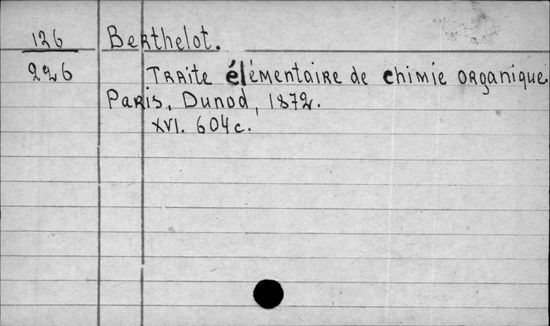 126 Berthelot.
226 Traite élémentaire de chimie organique
Paris, Dunod, 1872.
XVI. 604 c.